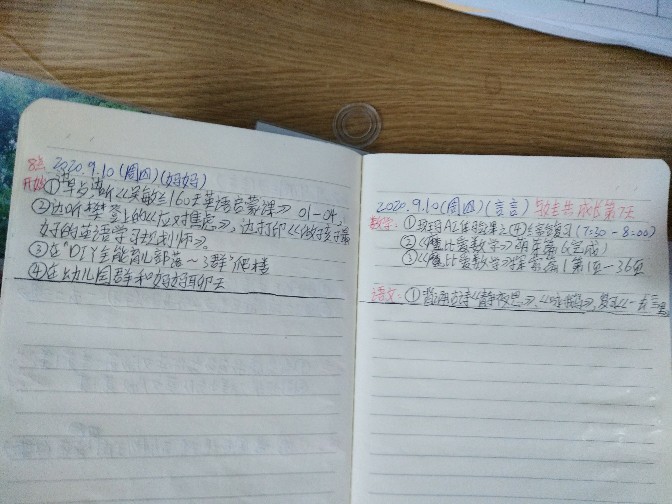 8点 2020.9.10(周四)(好好)
开始 ①学点听《吴敏兰160天英语启蒙课》01-04,
②边听樊登的《应对焦虑》,边打印《做好孩子最
好的英语学习规划师》。
③在"DIY全能育儿部落~3群"爬楼
④在幼儿园群和好好聊天
2020.9.10(周四)(言言) 与娃共成长第7天
数学:①(7:30-8:00)
②《魔计赛数学》萌芽篇(完成)
③《魔计赛数学》探索篇1第1页-36页
语文:①背诵古诗《静夜思》、《咏鹅》,复习《一去二三里》